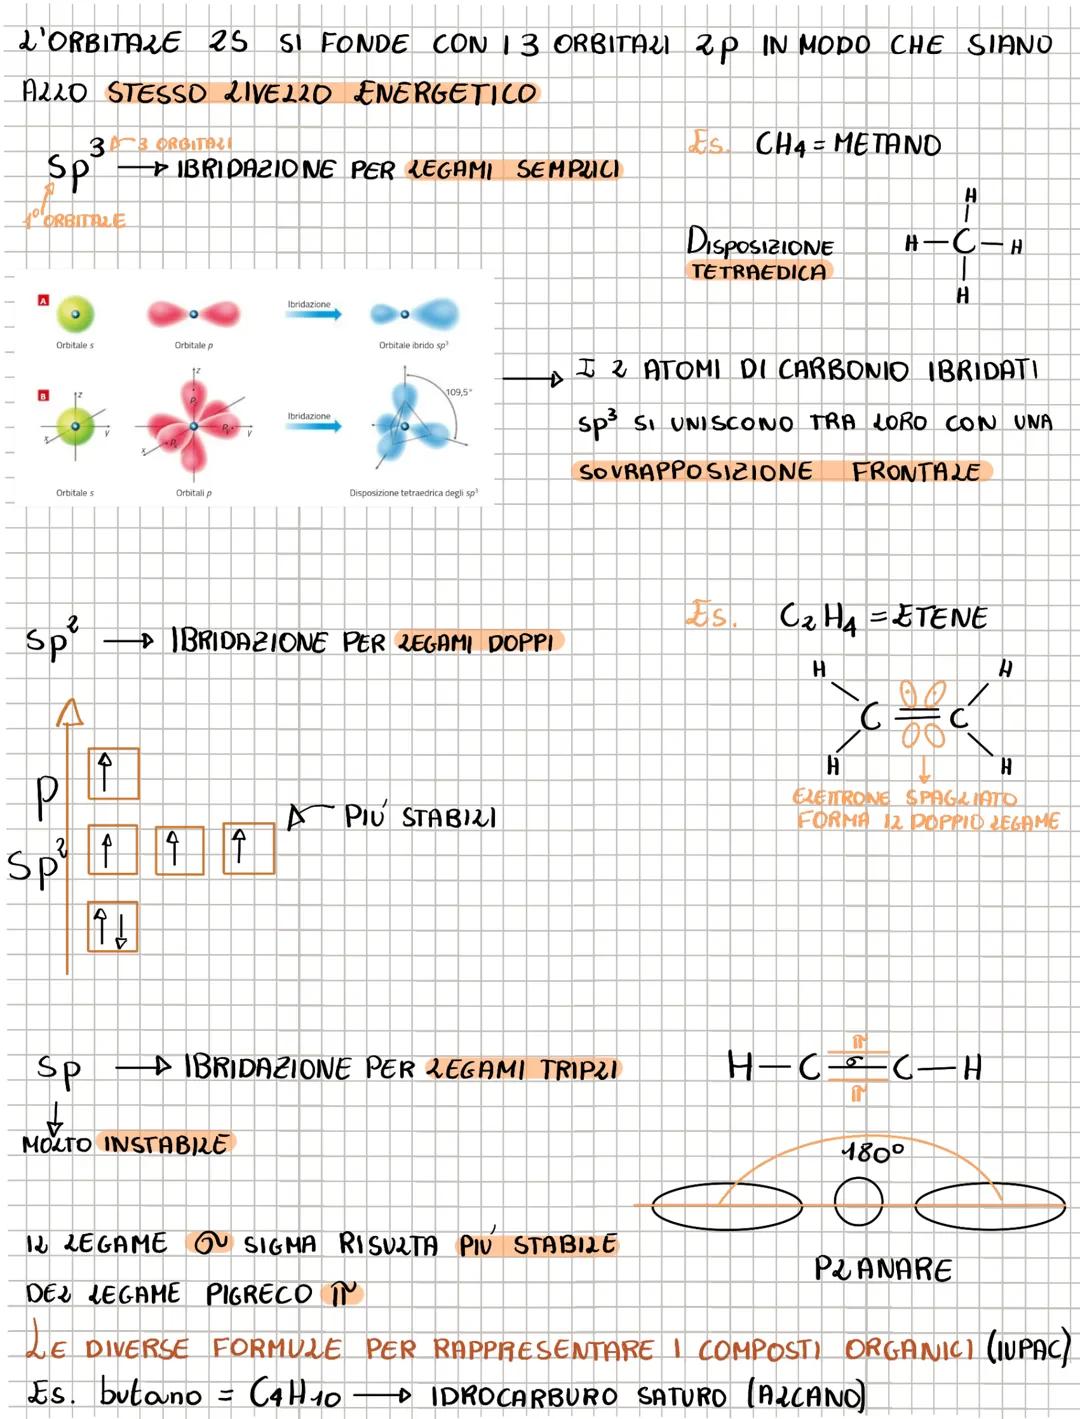 L'ORBITALE 2S SI FONDE CON I 3 ORBITALI 2p IN MODO CHE SIANO
ALLO STESSO LIVELLO ENERGETICO
3 ORBITALI
Sp³ → IBRIDAZIONE PER LEGAMI SEMPLICI
1° ORBITALE
Es. CH4 = METANO
DISPOSIZIONE
TETRAEDICA
H
H-C-H
H
A
Orbitale s
Orbitale p
Ibridazione
Orbitale ibrido sp³
B
z
x
y
Orbitale s
z
x
y
Pz
Px
Py
Orbitali p
Ibridazione
109,5°
Disposizione tetraedrica degli sp³
→ I 2 ATOMI DI CARBONIO IBRIDATI
sp³ SI UNISCONO TRA LORO CON UNA
SOVRAPPOSIZIONE FRONTALE
Sp² → IBRIDAZIONE PER LEGAMI DOPPI
Es. C2H4 = ETENE
H H
C=C
H H
ELETTRONE SPAGLIATO
FORMA IL DOPPIO LEGAME
p
Sp²
PIÚ STABILI
Sp → IBRIDAZIONE PER LEGAMI TRIPLI
MOLTO INSTABILE
π
H-C σ C-H
π
180°
PLANARE
IL LEGAME σ SIGMA RISULTA PIÚ STABILE
DEL LEGAME PIGRECO π
LE DIVERSE FORMULE PER RAPPRESENTARE I COMPOSTI ORGANICI (IUPAC)
Es. butano = C4H10 → IDROCARBURO SATURO (ALCANO)